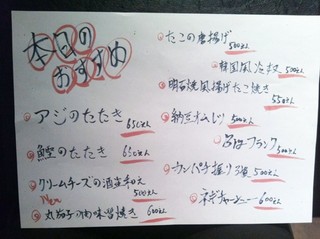 本日の
おすすめ
アジのたたき 650えん
鰹のたたき 650えん
クリームチーズの酒盗和え 500えん
New
丸茄子の肉味噌焼き 600えん
たこの唐揚げ 500えん
韓国風冷奴 500えん
明石焼風揚げたこ焼き 550えん
納豆オムレツ 500えん
フランク 500えん
ウンパチ握り 3貫 500えん
ネギチャーシュー 600えん